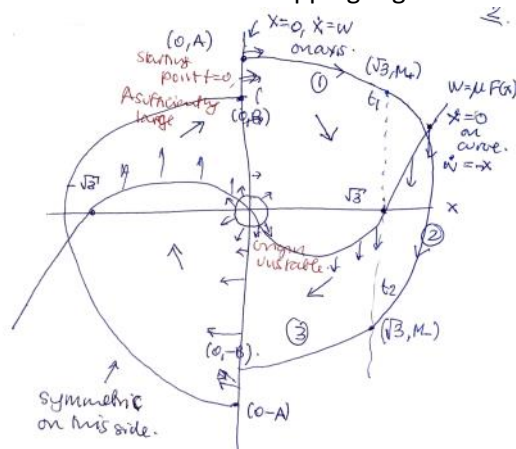 (0,A)
x=0, ẋ=w
on axis.
starting
point t=0,
A sufficiently
large
(0,B)
①
(√3, M₊)
t₁
w=μF(x)
ẋ=0
on
curve.
ẇ=-x
-√3
√3
x
origin
unstable.
②
t₂
③
(√3, M₋)
(0,-B).
(0-A)
symmetric
on this side.